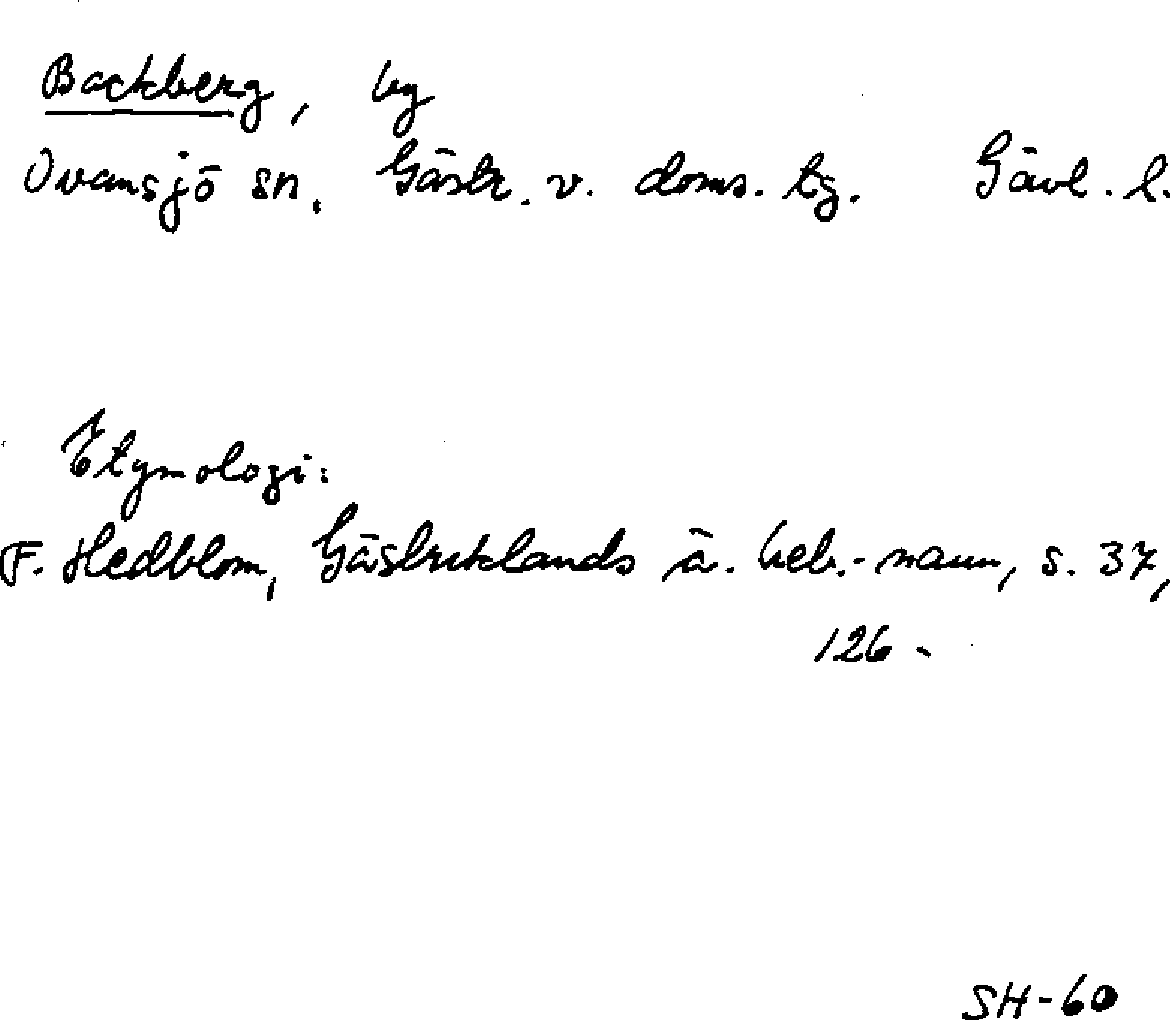 Backberg, by
Ovansjö sn. Gästr. v. doms. tg. Gävl. l.
Etymologi:
F. Hedblom, Gästriklands ä. beb.-namn, s. 37,
126.
SH-60